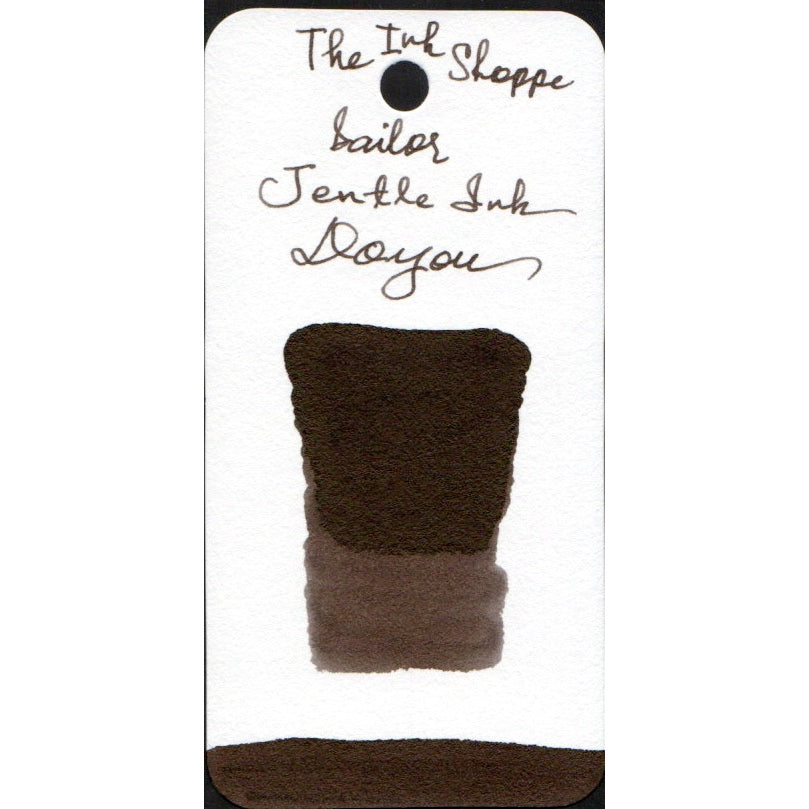 The Ink Shoppe
Sailor
Jentle Ink
Doyou